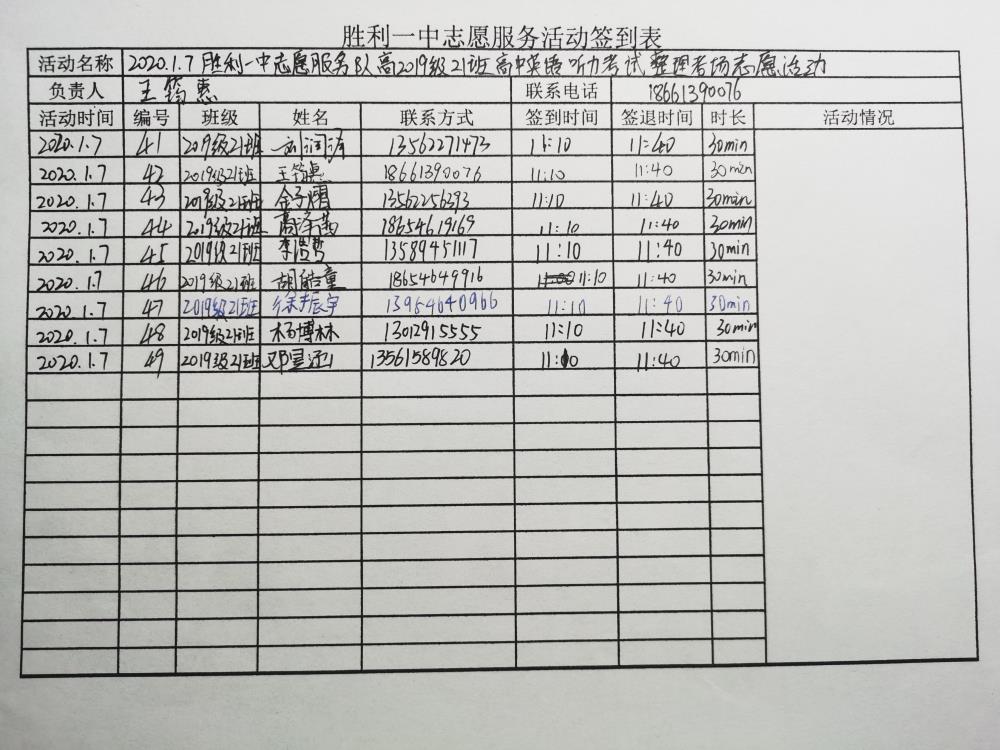 胜利一中志愿服务活动签到表
活动名称 2020.1.7 胜利一中志愿服务队高2019级21班高中英语听力考试整理考场志愿活动
负责人 王筠惠 联系电话 18661390076
活动时间 编号 班级 姓名 联系方式 签到时间 签退时间 时长 活动情况
2020.1.7 41 2019级21班 刘润泽 13562271473 11:10 11:40 30min
2020.1.7 42 2019级21班 王筠惠 18661390076 11:10 11:40 30min
2020.1.7 43 2019级21班 金子熠 13562256393 11:10 11:40 30min
2020.1.7 44 2019级21班 18654619169 11:10 11:40 30min
2020.1.7 45 2019级21班 13589451117 11:10 11:40 30min
2020.1.7 46 2019级21班 胡皓童 18654649916 11:10 11:40 30min
2020.1.7 47 2019级21班 徐振宇 13954640966 11:10 11:40 30min
2020.1.7 48 2019级21班 杨博林 13012915555 11:10 11:40 30min
2020.1.7 49 2019级21班 13561589820 11:10 11:40 30min